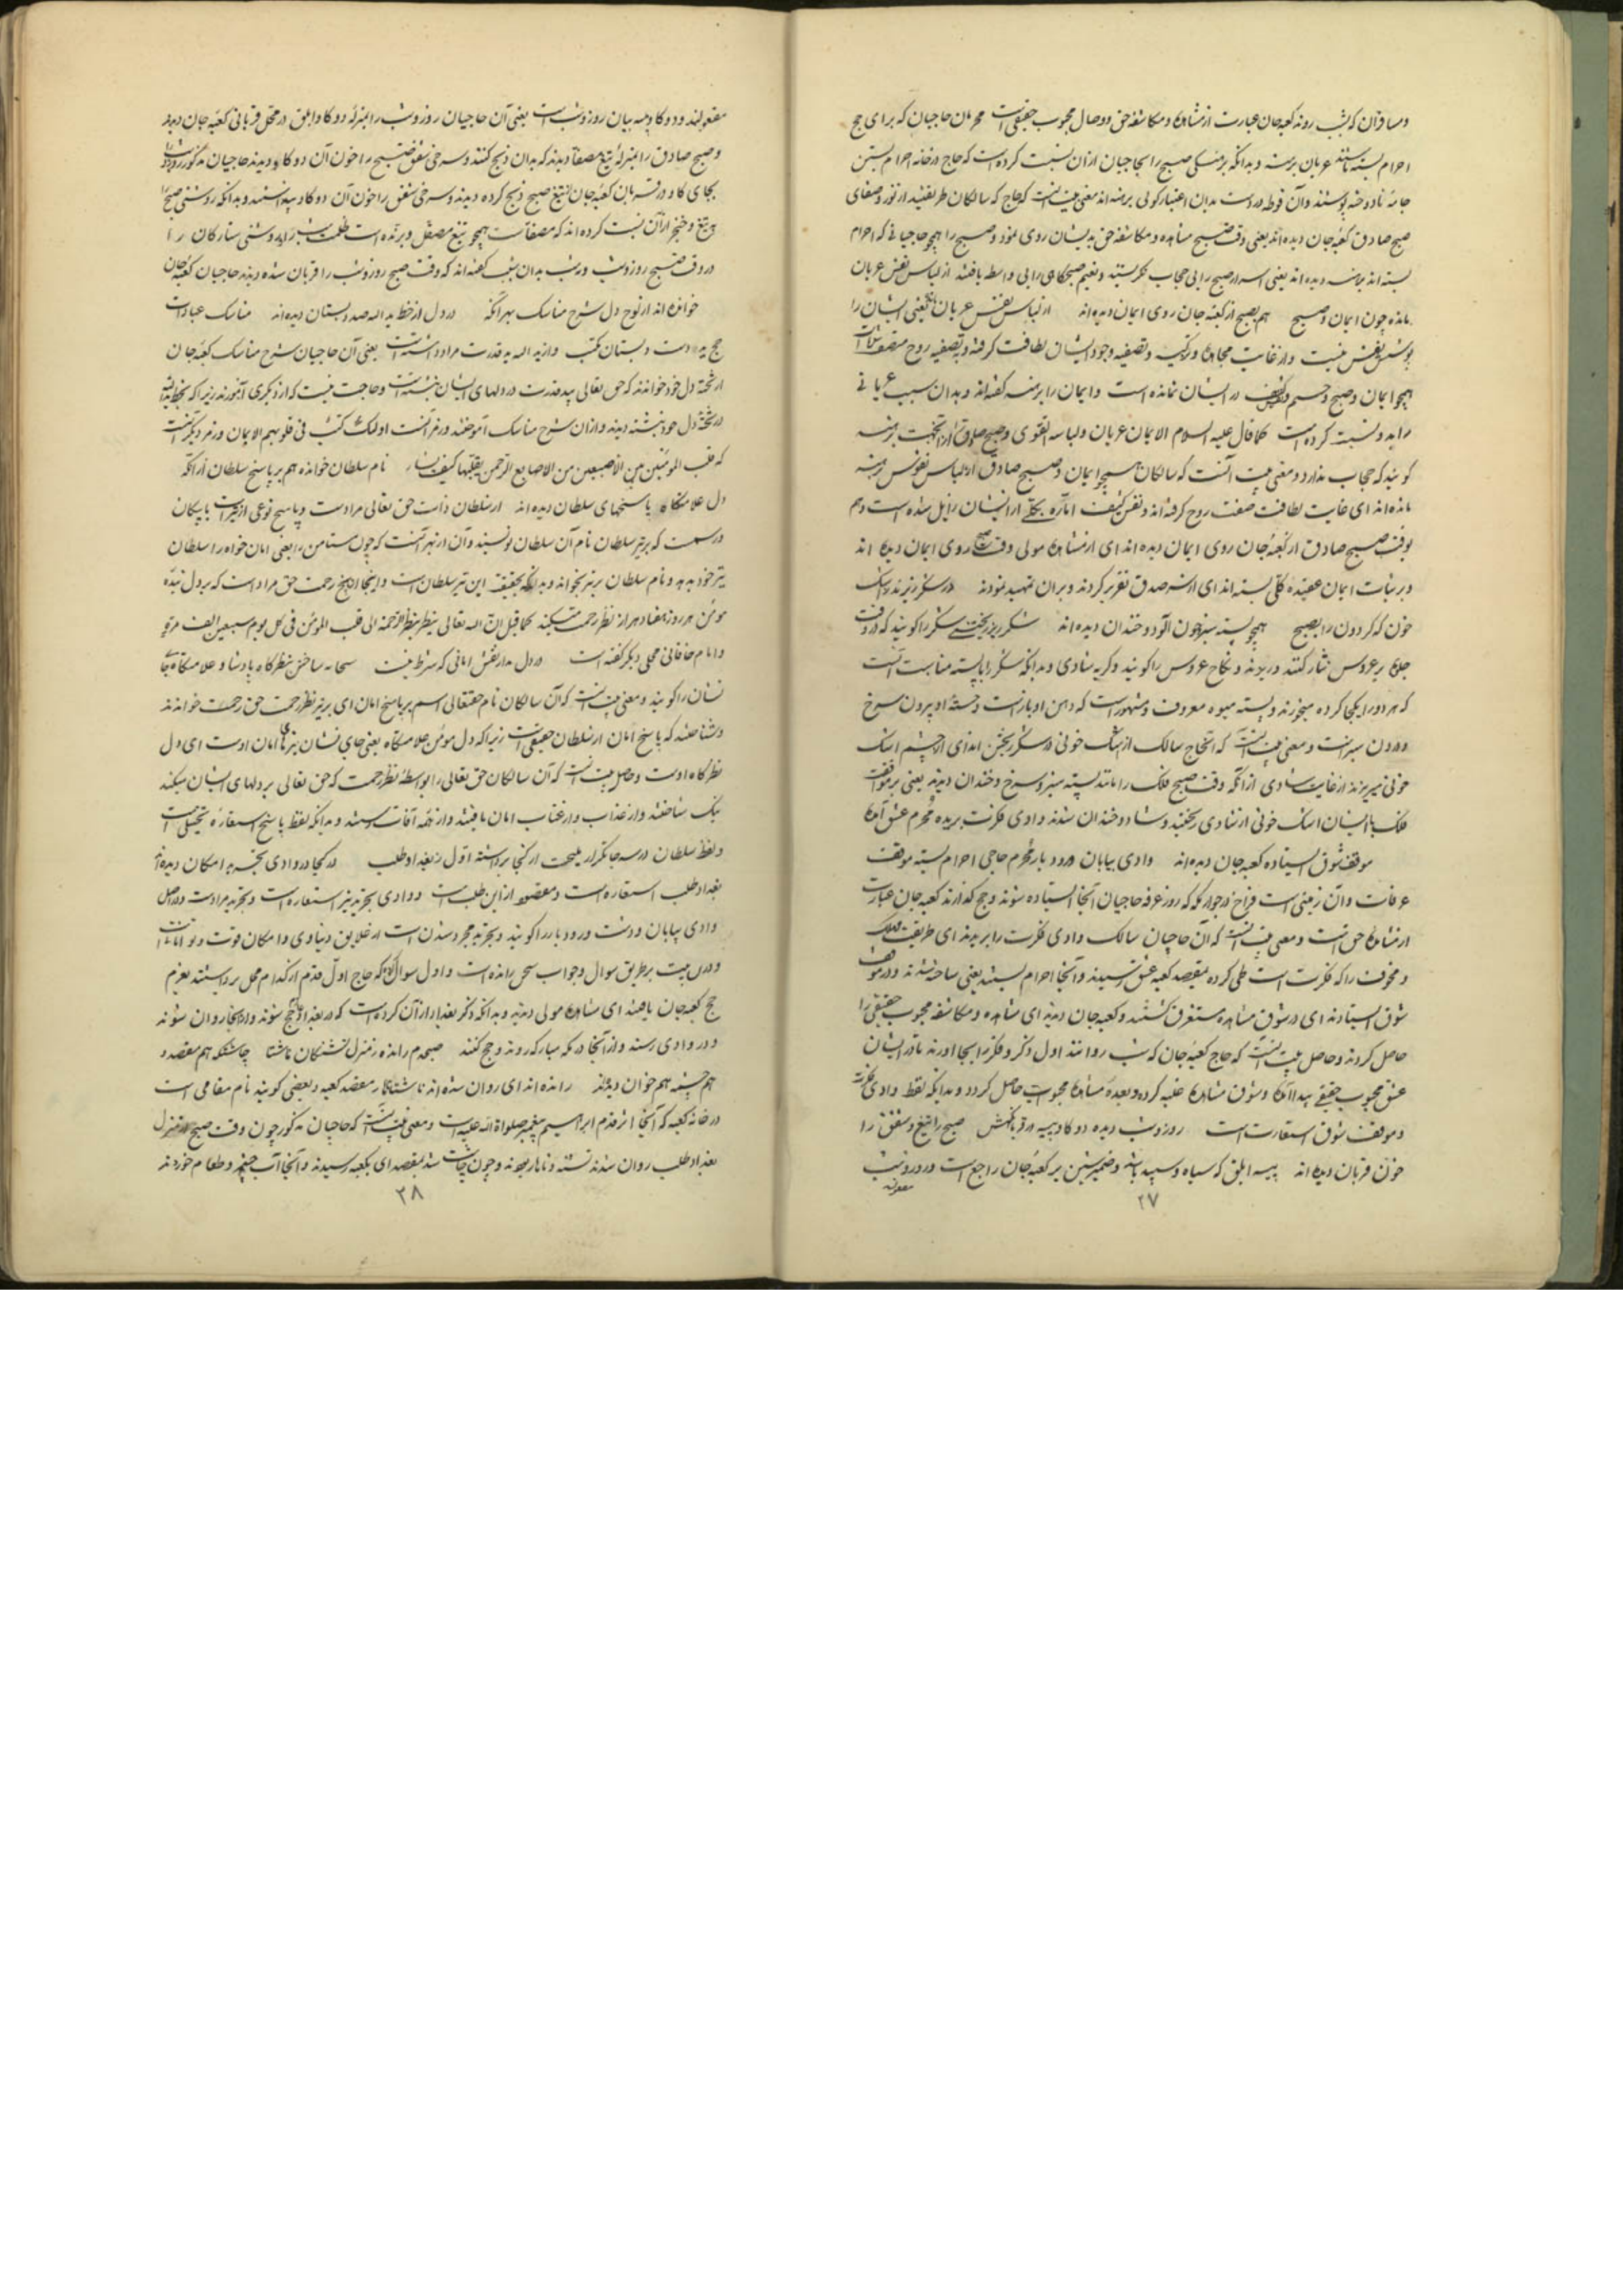 ومسافران که شب روند کعبه جان عبارت از مشاهده ومکاشفه حق ووصال محبوب حقیقی است محرمان حاجیان که برای حج
احرام بسته باشند عریان برهنه وبدانکه برهنگی صبح را بحاجیان ازان نسبت کرده است که حاج در خانه احرام بستن
جامه نادوخته پوشند وآن فوطه دروست بدان اعتبار گوئی برهنه اند معنی بیت آنست که حاج که سالکان طریقتند از نور وصفای
صبح صادق کعبه جان دیده اند یعنی وقت صبح مشاهده ومکاشفه حق بدیشان روی نمود وصبح را همچو حاجیانی که احرام
بسته اند برهنه دیده اند یعنی اسرار صبح را بی حجاب نگریستند ونعیم صبحگاهی را بی واسطه یافتند از لباس نفس عریان
مانده چون ایمان وصبح هم بصبح از کعبه جان روی ایمان دیده اند از لباس نفس عریان مانده یعنی ایشان را
پوشش نفس نیست واز غایت مجاهده وتزکیه وتصفیه وجود ایشان لطافت گرفته وتصفیه روح
همچو ایمان وصبح وجسم وکثیف در ایشان نمانده است وایمان را برهنه گفته اند وبدان سبب عریانی
را بدو نسبت کرده است کما قال علیه السلام الایمان عریان ولباسه التقوی وصبح صادق را ازانجهت برهنه
گویند که حجاب ندارد ومعنی بیت آنست که سالکان همچو ایمان وصبح صادق از لباس نفوس برهنه
مانده اند ای غایت لطافت صفت روح گرفته اند ونفس کثیف اماره بکلی از ایشان زایل شده است وهم
بوقت صبح صادق از کعبه جان روی ایمان دیده اند ای از مشاهده مولی وقت صبح روی ایمان دیده اند
وبر ثبات ایمان عقیده کلی بسته اند ای از سر صدق تقریر کردند وبران تمهید نمودند در شکر ریزند اشک
خون که گردون را بصبح همچو پسته سبز وخون آلود وخندان دیده اند شکر ریز بختن شکر را گویند که در وقت
جلوه بر عروس نثار کنند ونکاح عروس را گویند وگریه شادی وبدانکه شکر را با پسته مناسبت آنست
که هر دو را یکجا کرده میخورند وپسته میوه معروف ومشهور است که دهن او بازست وخسته او بیرون سرخ
ودرون سبز است ومعنی بیت آنست که آن حاج سالک از اشک خونی در شکر بخش اندازی از چشم اشک
خونی میریزند از غایت شادی ازانکه وقت صبح فلک را مانند پسته سبز وسرخ وخندان دیدند یعنی بر موافقت
فلک با ایشان اشک خونی از شادی ریختند وشاد وخندان شدند وادی فکرت بریده محرم عشق آمده
موقف شوق ایستاده کعبه جان دیده اند وادی بیابان ورود بار محرم حاجی احرام بسته موقف
عرفات وآن زمینی است فراخ در جوار مکه که روز عرفه حاجیان آنجا ایستاده شوند وحج گذارند کعبه جان عبارت
از مشاهده حق است ومعنی بیت آنست که آن حاجیان سالک وادی فکرت را بریدند ای طریقت
ومخوف را که فکرت است طی کرده بمقصد کعبه عشق رسیدند وآنجا احرام بستند یعنی ساخته شدند ودر موقف
شوق ایستادند ای در شوق مشاهده مستغرق گشتند وکعبه جان دیدند ای مشاهده ومکاشفه محبوب حقیقی را
حاصل کردند وحاصل بیت آنست که حاج کعبه جان که شب روانند اول ذکر وفکر را بجا آورند تا در ایشان
عشق محبوب حقیقی پیدا آمده وشوق مشاهده غلبه کرده وبعده مشاهده محبوب حاصل گردد وبدانکه لفظ وادی فکرت
وموقف شوق استعارت است روز وشب دیده دو گاو پیسه در قربانگهش صبح را تیغ وشفق را
خون قربان دیده اند پیسه ابلق که سیاه وسپید باشد وضمیر شین بر کعبه جان راجع است وروز وشب
۲۷
مفعولند ودو گاو پیسه بیان روز وشب است یعنی آن حاجیان روز وشب را بمنزله دو گاو ابلق در محل قربانی کعبه جان دیدند
وصبح صادق را بمنزله تیغ مصفا دیدند که بدان ذبح کنند وسرخی شفق صبح را خون آن دو گاو دیدند حاجیان مذکور روز وشب را
بجای گاو در قربان کعبه جان بتیغ صبح ذبح کرده دیدند وسرخی شفق را خون آن دو گاو پنداشتند وبدانکه روشنی صبح را
بتیغ وخنجر ازآن نسبت کرده اند که مصفاست همچو تیغ مصقل وبرنده است ظلمت شب را وروشنی ستارگان را
در وقت صبح روز وشب بدان سبب گفته اند که وقت صبح روز وشب را قربان شده دیدند حاجیان کعبه جان
خوانده اند از لوح دل شرح مناسک بهر آنکه در دل از خط ید الله صد دبستان دیده اند مناسک عبادات
حج ید دست دبستان مکتب وازید الله ید قدرت مراد داشته است یعنی آن حاجیان شرح مناسک کعبه جان
از تخته دل خود خواندند که حق تعالی بید قدرت در دلهای ایشان نبشته است وحاجت نیست که از دیگری آموزند زیرا که بخط ید الله
در تخته دل خود نبشته دیدند وازان شرح مناسک آموختند ورمز آنست اولئک کتب فی قلوبهم الایمان ورمز دیگر آنست
که قلب المومنین بین الاصبعین من الاصابع الرحمن یقلبها کیف یشاء نام سلطان خوانده هم بر پاسخ سلطان ازانکه
دل علامتگاه یاسخهای سلطان دیده اند از سلطان ذات حق تعالی مرادست ویاسخ نوعی از تیر است با پیکان
ورسمست که بر تیر سلطان نام آن سلطان نویسند وآن از بهر آنست که چون مستامن را یعنی امان خواه را سلطان
تیر خود بدهد ونام سلطان بر تیر بخواند وبدانکه بحقیقت این تیر سلطان است واینجا از یاسخ رحمت حق مراد است که بر دل بنده
مومن هر روز هفتاد هزار نظر رحمت میکند کما قیل ان الله تعالی ینظر بنظر الرحمة الی قلب المومن فی کل یوم سبعین الف مرة
وامام خاقانی محلی دیگر گفته است در دل مدار نقش امانی که شرط نیست بتخانه ساختن بنظرگاه پادشا وعلامتگاه جای
نشان را گویند ومعنی بیت آنست که آن سالکان نام حقتعالی اسم بر یاسخ امان ای بر تیر نظر رحمت حق رحمت خواندند
وشناختند که یاسخ امان از سلطان حقیقی است زیرا که دل مومن علامتگاه یعنی جای نشان تیرهای امان اوست ای دل
نظرگاه اوست وحاصل بیت آنست که آن سالکان حق تعالی را بواسطه نظر رحمت که حق تعالی بر دلهای ایشان میکند
نیک شناختند واز عذاب واز عقاب امان یافتند واز همه آفات رستند وبدانکه لفظ یاسخ استعاره تخییلی است
ولفظ سلطان از کجا برداشته اول ز بغداد طلب در کجا در وادی تجرید امکان دیده اند
بغداد طلب استعاره است ومقصود ازاین طلب است ووادی تجرید نیز استعاره است وتجرید مرادست ودر اصل
وادی بیابان ودشت ورود بار را گویند وتجرید مجرد شدن است از علایق دنیاوی وامکان قوت
ودرین بیت بر طریق سوال وجواب سخن رانده است واول سوال کرده که حاج اول قدم از کدام محل برداشتند بعزم
حج کعبه جان یافتند ای مشاهده مولی دیدند وبدانکه ذکر بغداد ازآن کرده است که در بغداد جمع شوند وازانجا روان شوند
ودر وادی رسند وازآنجا در مکه مبارکه روند وحج کنند صبحدم رانده ز منزل تشنگان ناشتا چاشتگه هم مقصد و
هم چشمه هم خوان دیده اند رانده اند ای روان شده اند ناشتا نهار مقصد کعبه وبعضی گویند نام مقامی است
در خانه کعبه که آنجا اثر قدم ابراهیم پیغمبر صلواة الله علیه است ومعنی بیت آنست که حاجیان مذکور چون وقت صبح از منزل
بغداد طلب روان شدند تشنه ونهار بودند وچون چاشت شد بمقصد ای بکعبه رسیدند وآنجا آب چشمه وطعام خوردند
۲۸